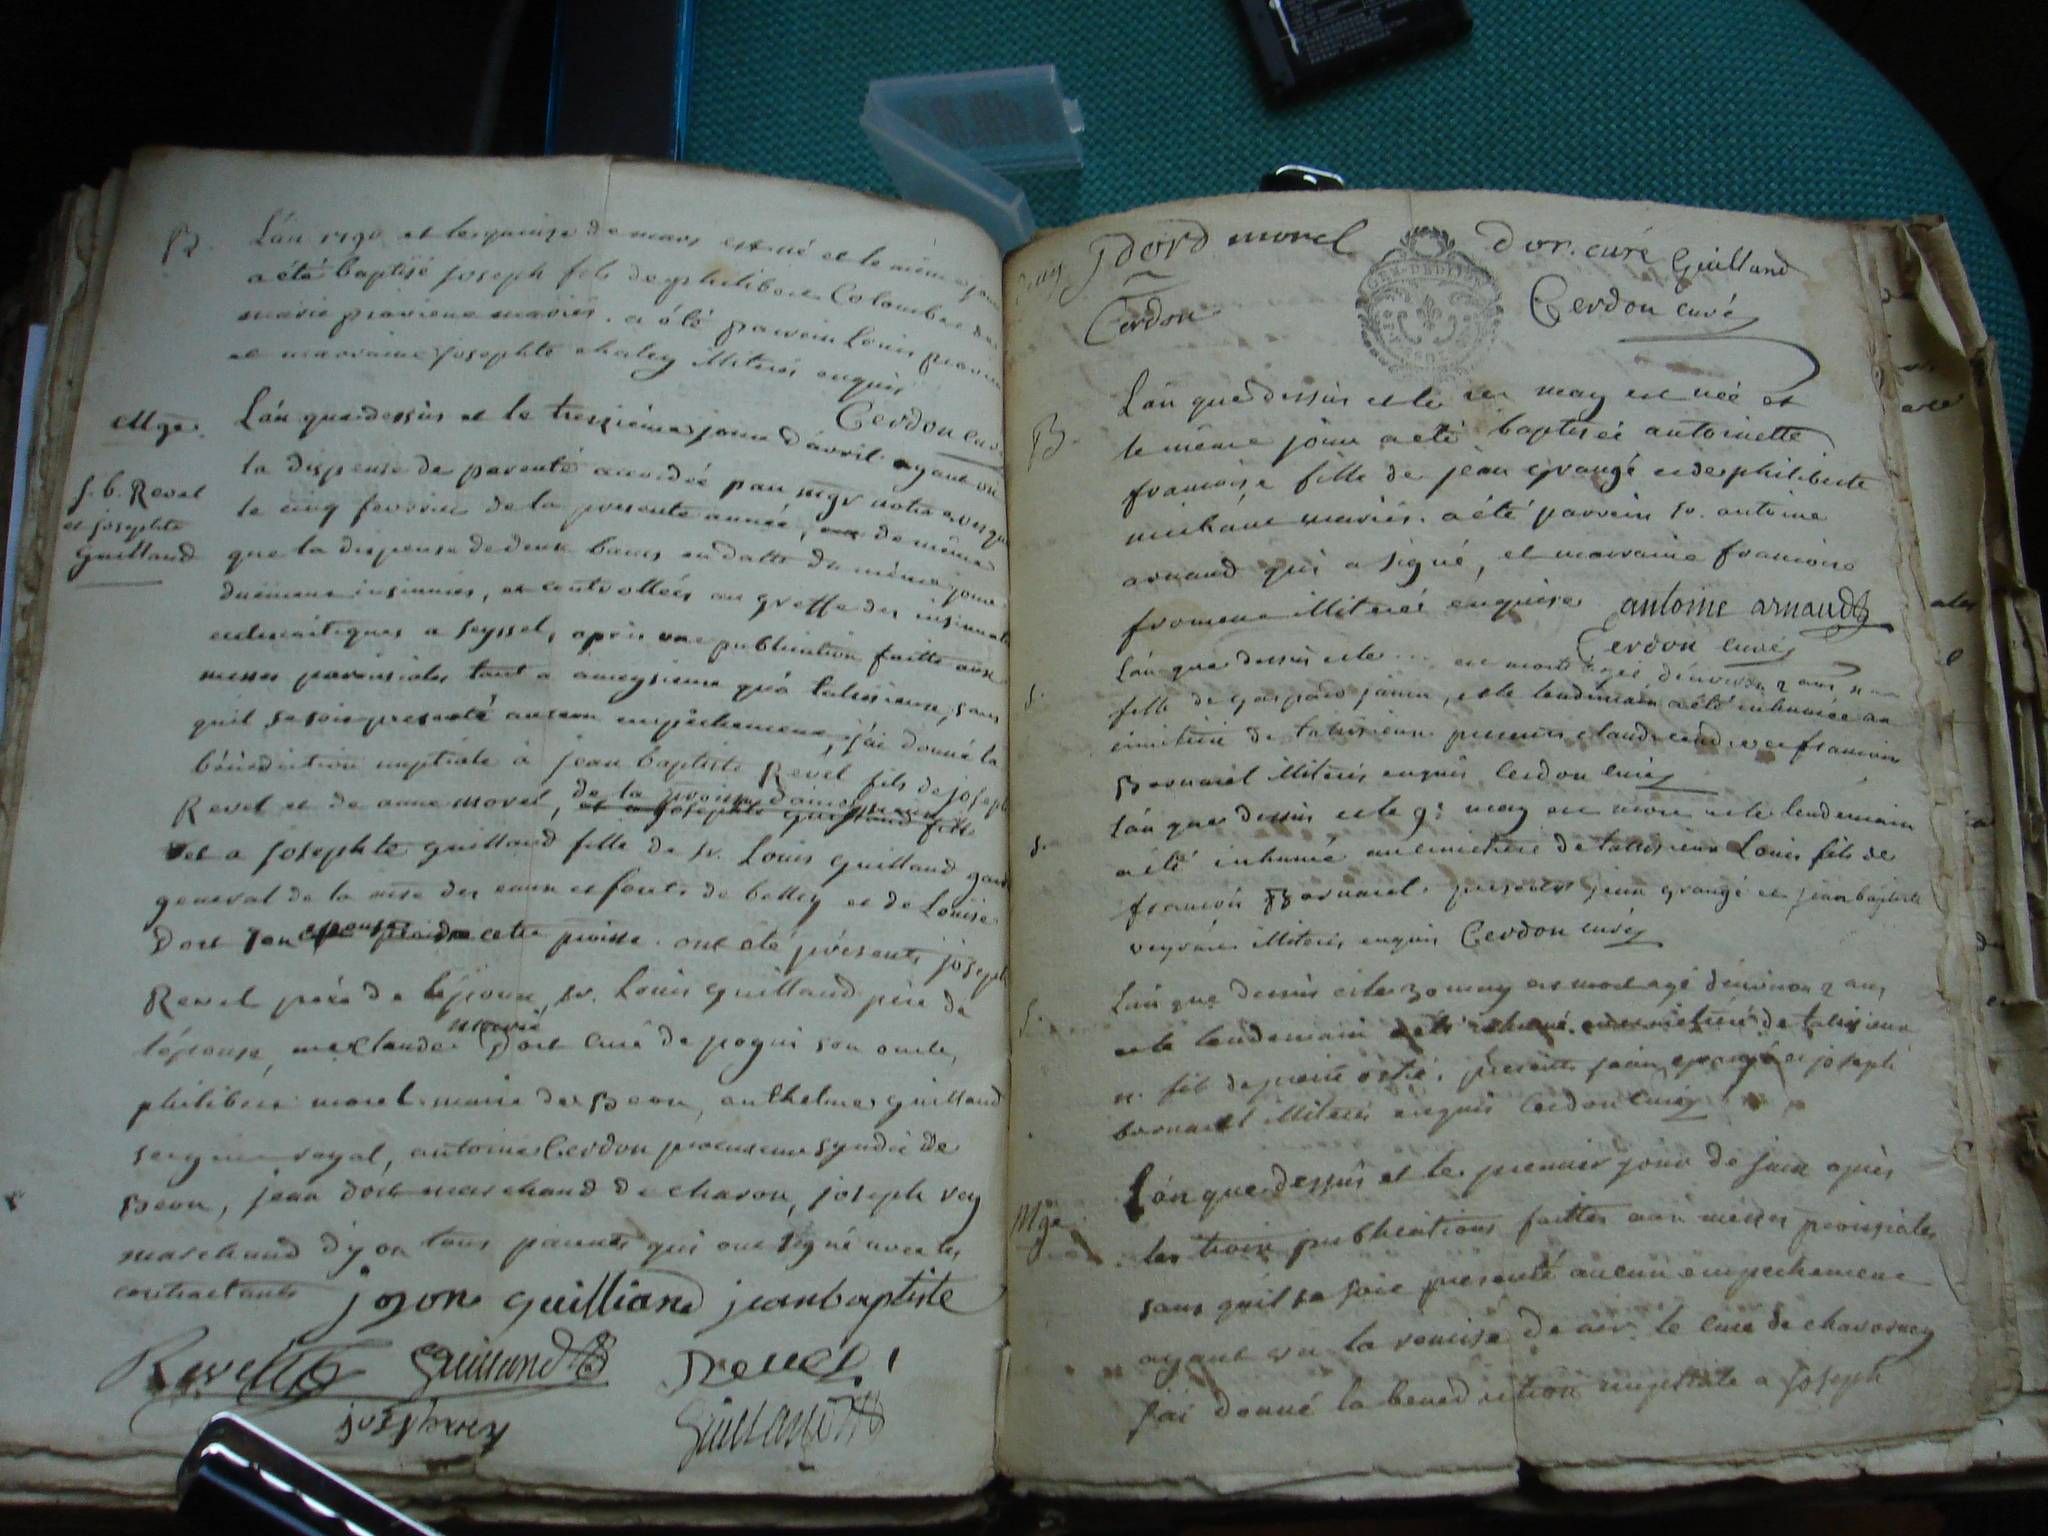 B.
L'an 1790 et le quinze de mars est né et le même jour
a été baptisé joseph fils de philibert Colombet et de
marie mariés. a été parrein Louis
et marraine josephte illiterés enquis
Cerdon curé
Mge.
j. b. Revel
et josephte
Guilland
L'an que dessus et le treizième jour d'avril ayant vu
la dispense de parenté accordée par mgr notre evesque
le cinq fevrier de la presente année, de même
que la dispense de deux bancs en datte du même jour
duëment insinuées, et controllées au greffe des insinuat
eclesiastiques a seyssel, après une publication faitte aux
messes paroissiales tant a ameysieux qu'a talissieux, sans
quil se soit presenté aucun empêchement, j'ai donné la
bénédiction nuptiale à jean baptiste Revel fils de joseph
Revel et de anne morel, de la paroisse d'ameysieux
et a josephte guilland fille
et a josephte guilland fille de sr. Louis guilland garde
general de la mse des eaux et forets de belley et de Louise
Dort son epouse de cette proisse. ont été présents joseph
Revel père de l'époux, sr. Louis guilland père de
l'épouse, mre claude marie Dort curé de pogni son oncle,
philibert morel maire de Beon, anthelme guilland
royal, antoine Cerdon procureur syndic de
Beon, jean dort marchand de chavon, joseph rey
marchand d'yon tous parents qui ont signé avec les
contractants josone guilliand jeanbaptiste
Revel Guilland Revel
joseph rey Guilland
J dord morel D or. curé Guilland
Cerdon Cerdon curé
GEN. DE DIJON
B.
L'an que dessus et le 1er may est née et
le même jour a été baptisée antoinette
francoise fille de jean grangé et de philiberte
michaut mariés. a été parrein sr. antoine
arnaud qui a signé, et marraine francoise
froment illiterée enquise antoine arnaud
Cerdon curé
S.
L'an que dessus et le est morte agée d'environ 2 ans
fille de gaspard janin, et le lendemain a été inhumée au
cimitière de talissieux presents claude et francois
Bornarel illiterés enquis Cerdon curé
S.
L'an que dessus et le 9: may est mort et le lendemain
a été inhumé au cimitière de talissieux Louis fils de
francois Bornarel. presents jean grangé et jean baptiste
veyron illiterés enquis Cerdon curé
S.
L'an que dessus et le 20 may est mort agé d'environ 2 ans
et le lendemain a été inhumé au cimitière de talissieux
n. fils de pierre ostié, presents jean grangé et joseph
bornarel illiterés enquis Cerdon curé
Mge
L'an que dessus et le premier jour de juin après
les trois publications faittes aux messes proissiales
sans quil se soit presenté aucun empechement
ayant vu la remise de mr. le curé de chavornay
j'ai donné la benediction nuptiale a joseph